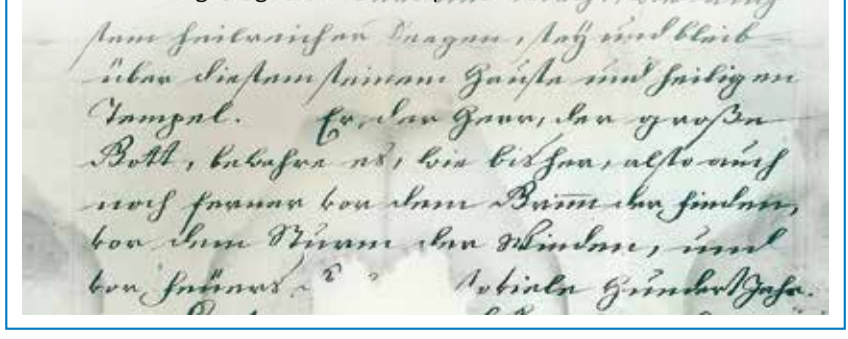 sein heilreicher Seegen, sey und bleib
über diesem seinem Hause und heiligen
Tempel. Er, der Herr, der große
Gott, bewahre es, wie bisher, also auch
noch ferner vor dem Grimm der Feinden,
vor dem Sturm der Winden, und
vor Feüers
soviele Hundert Jahr.